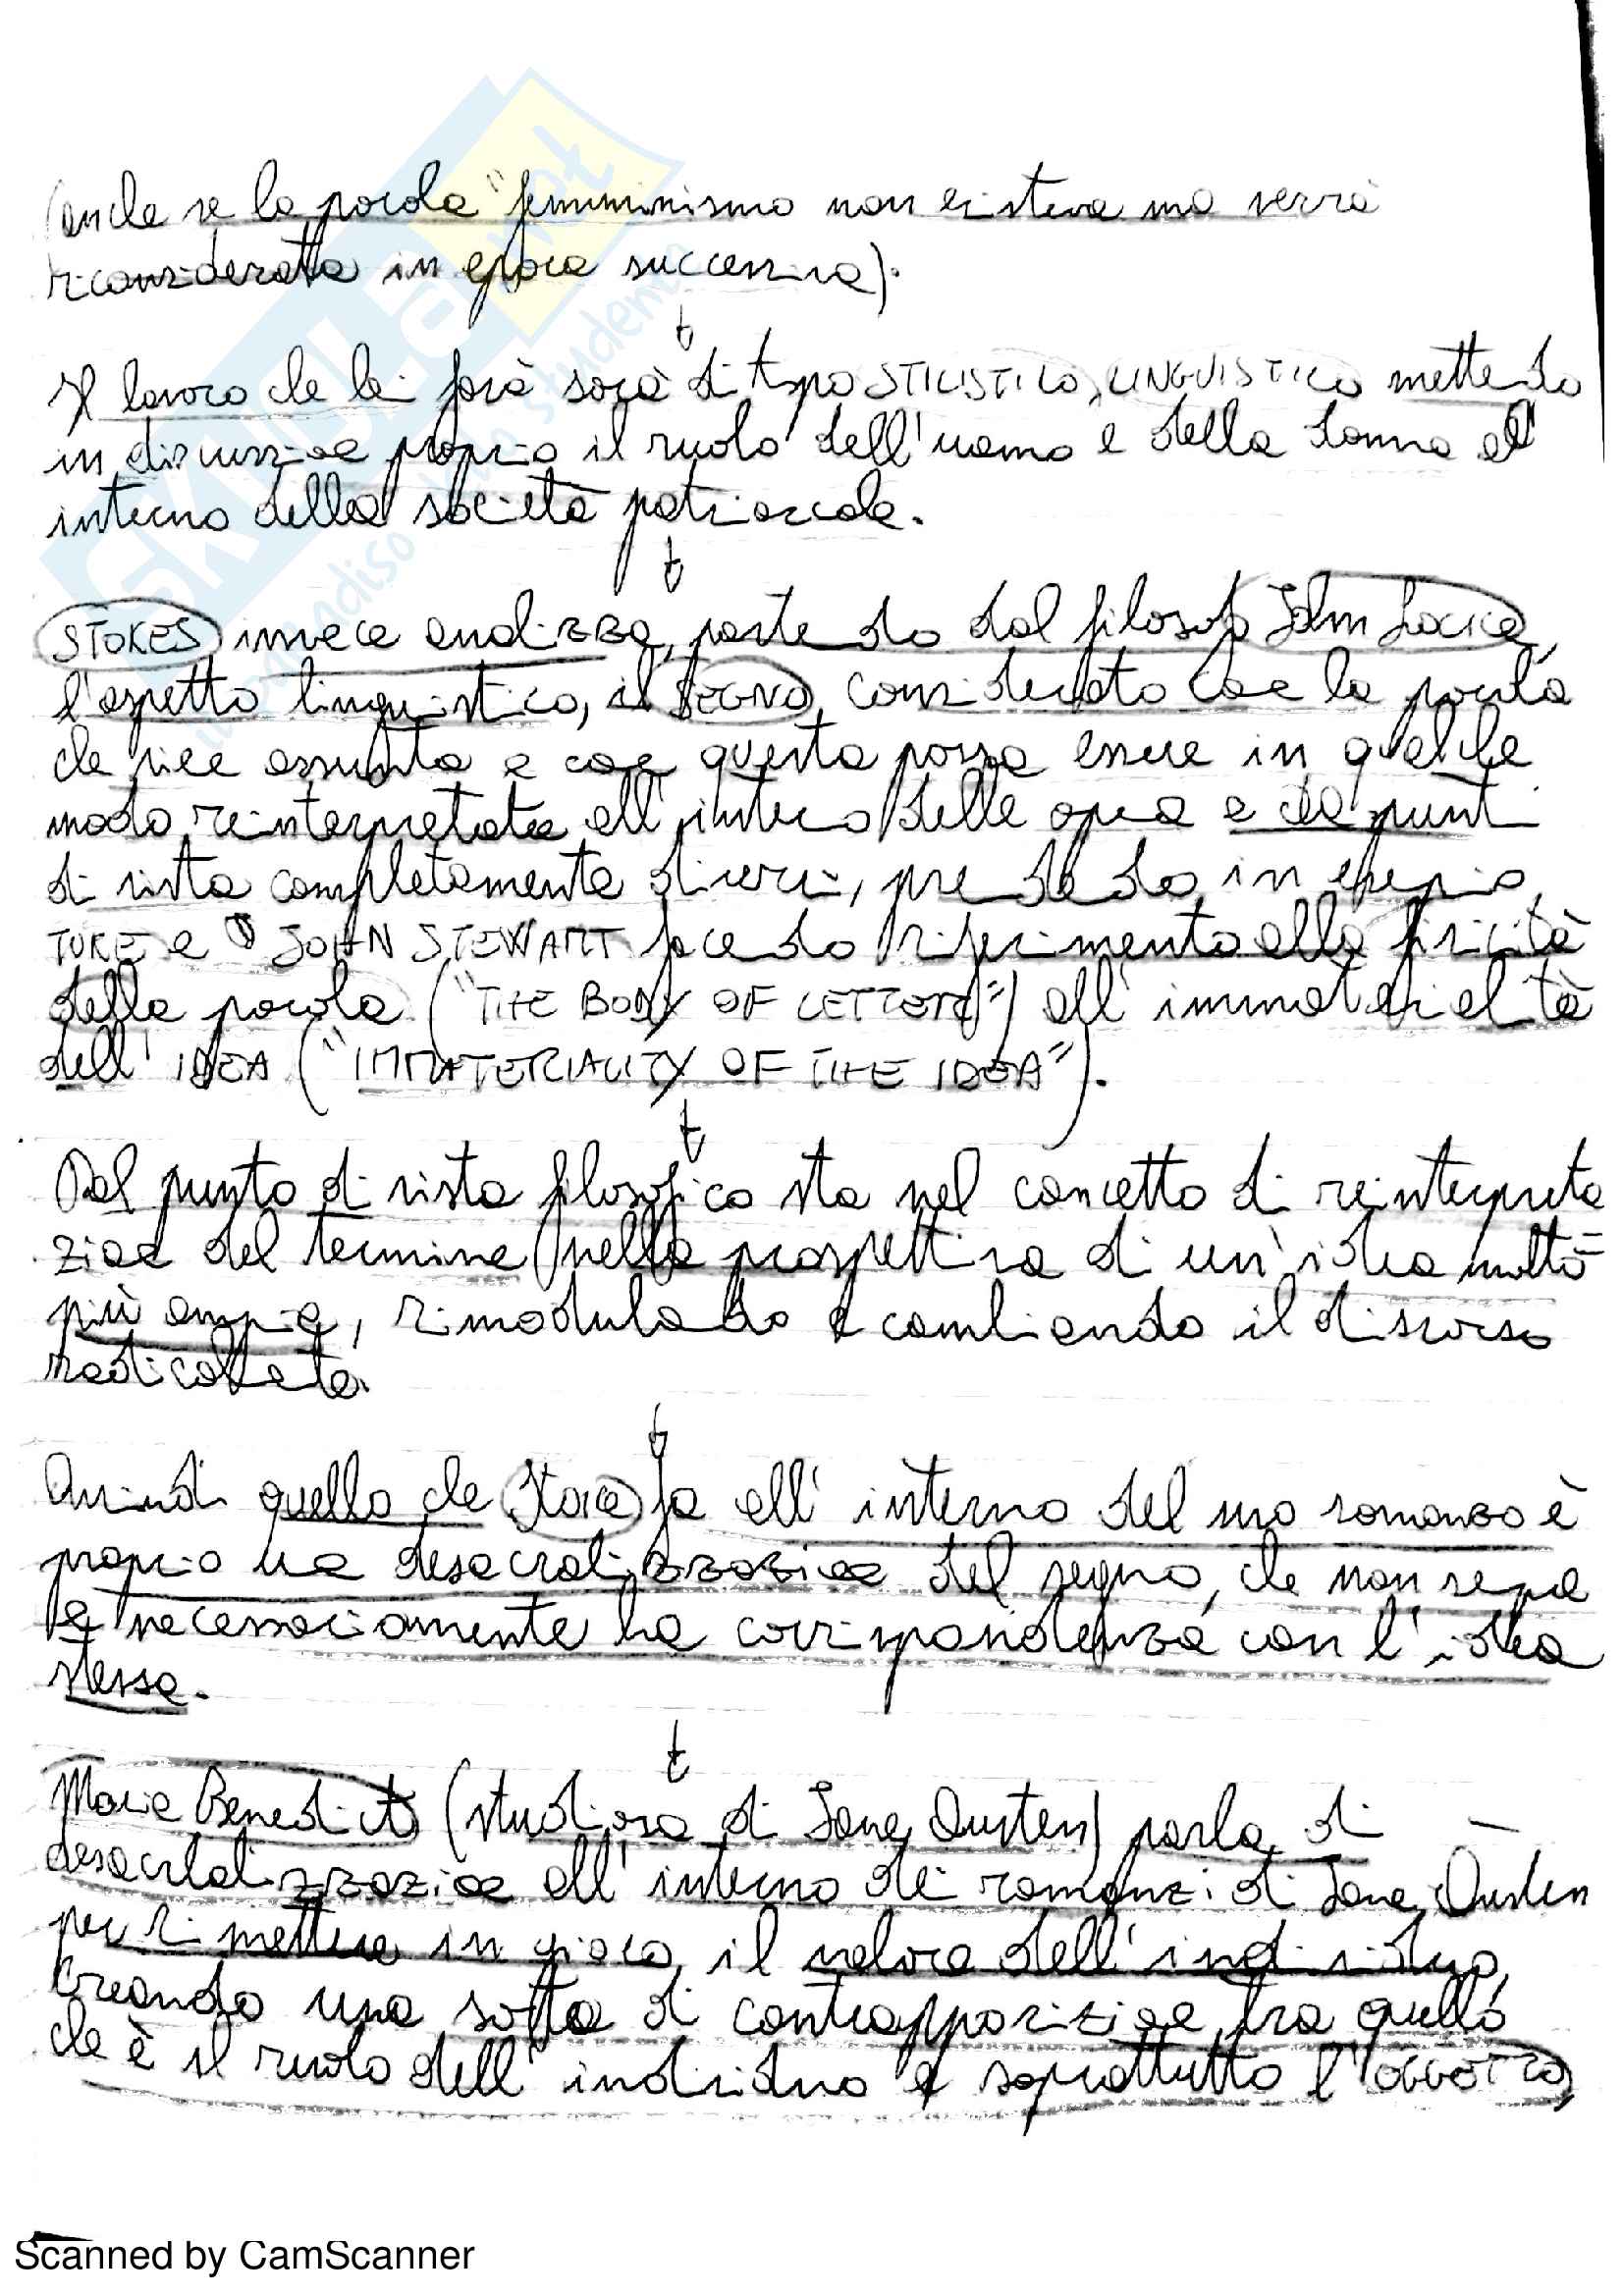 (anche se la parola "femminismo non esisteva ma verrà
riconsiderata in epoca successiva).
Il lavoro che lei farà sarà di tipo STILISTICO, LINGUISTICO mettendo
in discussione proprio il ruolo dell'uomo e della donna all'
interno della società patriarcale.
STOKES invece analizza, partendo dal filosofo John Locke,
l'aspetto linguistico, il SEGNO, considerato come la parola
che viene assunta e come questa possa essere in qualche
modo reinterpretata all'interno delle opere e da punti
di vista completamente diversi, prendendo in esempio,
TOKE e JOHN STEWART facendo riferimento alla fisicità
della parola ("THE BODY OF LETTERS") all'immaterialità
dell'IDEA ("IMMATERIALITY OF THE IDEA").
Dal punto di vista filosofico sta nel concetto di reinterpreta
zione del termine nella prospettiva di un'idea molto
più ampia, rimodulando e cambiando il discorso
radicalmente.
Quindi quello che fa all'interno del suo romanzo è
proprio una desacralizzazione del segno, che non sempre
e necessariamente ha corrispondenza con l'idea
stessa.
Marie Benedict (studiosa di Jane Austen) parla di
desacralizzazione all'interno dei romanzi di Jane Austen
per rimettere in gioco il valore dell'individuo,
creando una sorta di contrapposizione tra quello
che è il ruolo dell'individuo e soprattutto l'OGGETTO,
SKUOLA.not
in paradiso studente
Scanned by CamScanner